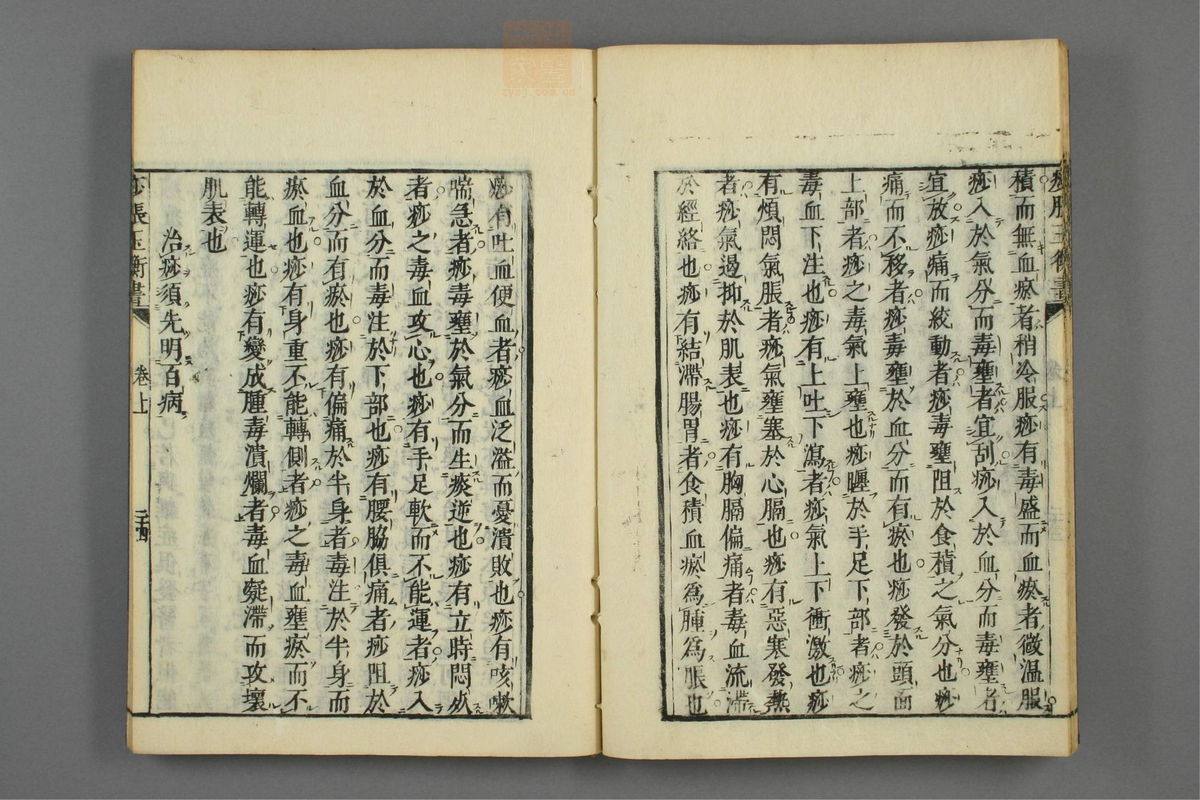 積而無血瘀者稍冷服痧有毒盛而血瘀者微溫服
痧入於氣分而毒壅者宜刮痧入於血分而毒壅者
宜放痧痛而絞動者痧毒壅阻於食積之氣分也痧
痛而不移者痧毒壅於血分而有瘀也痧發於頭面
上部者痧之毒氣上壅也痧纏於手足下部者痧之
毒血下注也痧有上吐下瀉者痧氣上下衝激也痧
有煩悶氣脹者痧氣壅塞於心膈也痧有惡寒發熱
者痧氣遏抑於肌表也痧有胸膈偏痛者毒血流滯
於經絡也痧有結滯腸胃者食積血瘀爲腫爲脹也
痧有吐血便血者痧血泛溢而憂潰敗也痧有咳嗽
喘急者痧毒壅於氣分而生痰逆也痧有立時悶死
者痧之毒血攻心也痧有手足軟而不能運者痧入
於血分而毒注於下部也痧有腰脇俱痛者痧阻於
血分而有瘀也痧有偏痛於半身者毒注於半身而
瘀血也痧有身重不能轉側者痧之毒血壅瘀而不
能轉運也痧有變成腫毒潰爛者毒血凝滯而攻壞
肌表也
治痧須先明百病
痧脹玉衡書
卷上
二十四
zysj.com.cn